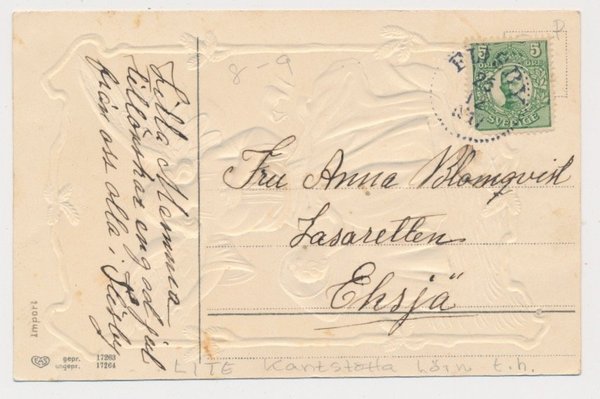 Lilla Mamma
tillönskas en god jul
från oss alla i Flisby
8-9
D
5 5
ÖRE
SVERIGE
FLISBY
23
12
Fru Anna Blomqvist
Lasaretten
Eksjö
Import
EAS
gepr. 17263
ungepr. 17264
LITE Kantstötta hörn t.h.